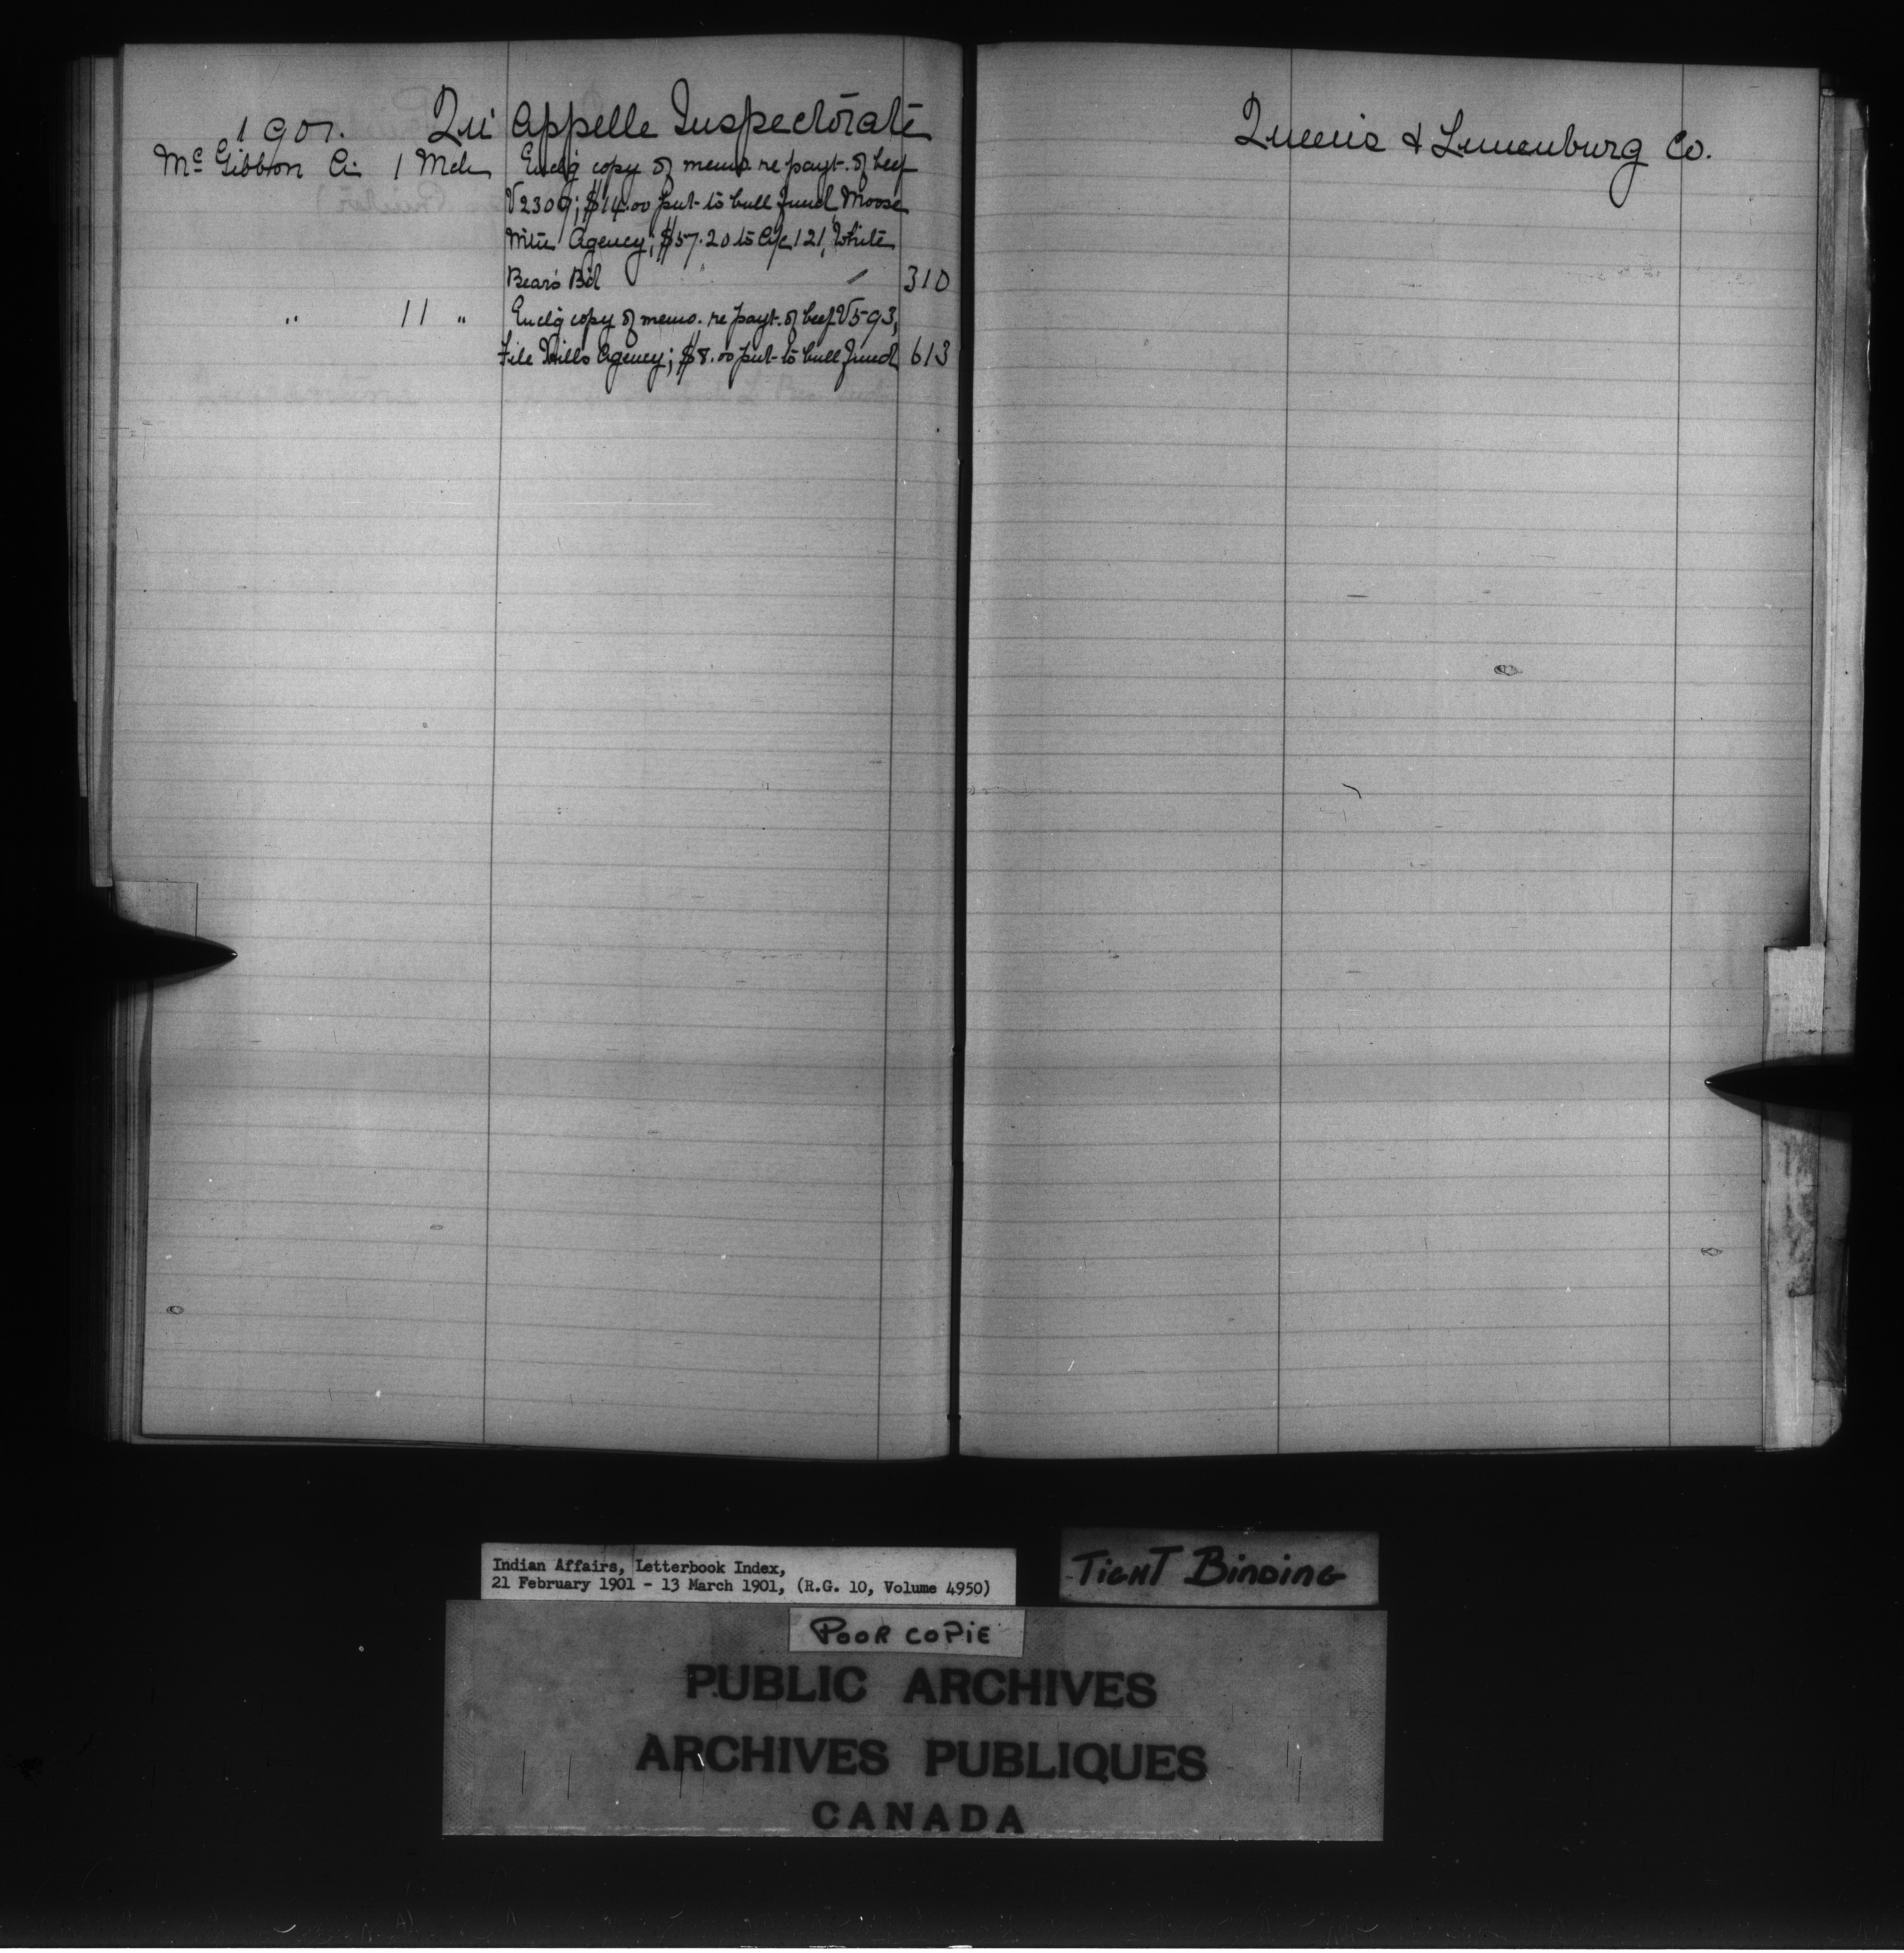 1901. Qu'Appelle Inspectorate
McGibbon A. 1 Mch Enclg copy of memo. re payt. of beef
V2309; $14.00 put to bull fund Moose
Mtn Agency; $57.20 to A/c 121, White
Bear's Bd 310
" 11 " Enclg copy of memo. re payt. of beef V593,
File Hills Agency; $8.00 put to bull fund 613
Queens & Lunenburg Co.
Indian Affairs, Letterbook Index,
21 February 1901 - 13 March 1901, (R.G. 10, Volume 4950)
TIGHT BINDING
POOR COPIE
PUBLIC ARCHIVES
ARCHIVES PUBLIQUES
CANADA